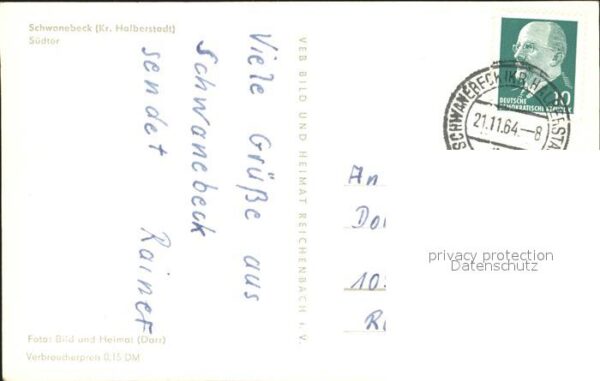 Schwanebeck (Kr. Halberstadt)
Südtor
Viele Grüße aus
Schwanebeck
sendet Rainer
Foto: Bild und Heimat (Darr)
Verbraucherpreis 0,15 DM
VEB BILD UND HEIMAT REICHENBACH i. V.
10
DEUTSCHE
DEMOKRATISCHE REPUBLIK
SCHWANEBECK (KR. HALBERSTA
21.11.64.--8
An
privacy protection
Datenschutz